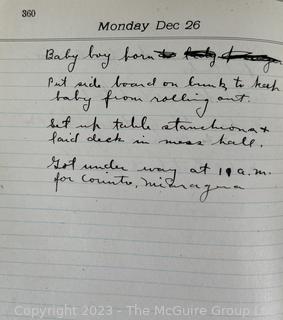 360
Monday Dec 26
Baby boy born to
Put side board on bunk to keep
baby from rolling out.
Set up table stanchions &
laid deck in mess hall.
Got under way at 10 a.m.
for Corinto, Nicaragua
Copyright 2023 - The McGuire Group L